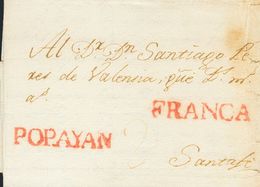 Al Dr. Dn. Santiago Pe-
res de Valensia, qüe D. m.
as.
FRANCA
POPAYAN
Santafe